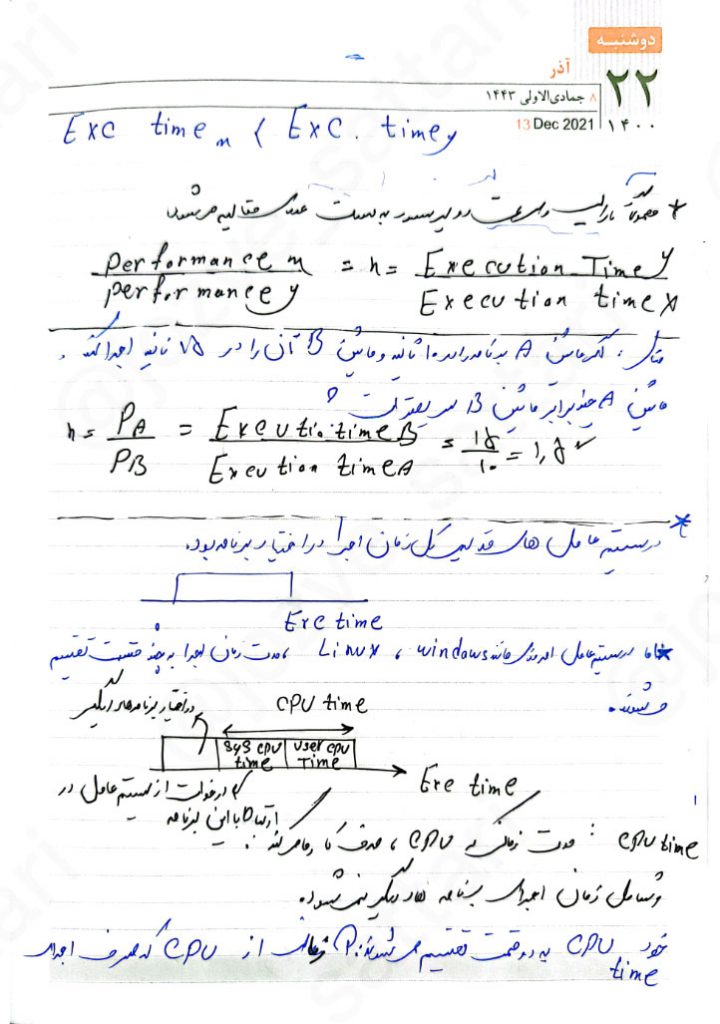 دوشنبه
آذر
۲۲
۸ جمادی‌الاولی ۱۴۴۳
13 Dec 2021
۱۴۰۰
Exc time x < Exc. time y
* معمولاً کارایی و سرعت دو پردازنده نسبت به هم مقایسه می‌شود
performance x / performance y = n = Execution Time y / Execution time x
مثال: اگر ماشین A برنامه‌ای را در ۱۰ ثانیه و ماشین B آن را در ۱۵ ثانیه اجرا کند،
ماشین A چند برابر ماشین B سریعتر است؟
n = PA / PB = Execution time B / Execution time A = ۱۵ / ۱۰ = ۱,۵
* در سیستم عامل های قدیمی کل زمان اجرا در اختیار برنامه بود.
Exe time
* اما در سیستم عامل امروزی مانند windows ، Linux ، مدت زمان اجرا به چند قسمت تقسیم
می‌شود.
در اختیار برنامه‌های دیگر
CPU time
sys cpu time
user cpu Time
Exe time
درخواست از سیستم عامل در
ارتباط با این برنامه
CPU time : مدت زمانی که CPU ، صرف کار ما می‌کند
و شامل زمان اجرای برنامه های دیگر نمی‌شود.
خود CPU time به دو قسمت تقسیم می‌شود: زمانی از CPU که صرف اجرای